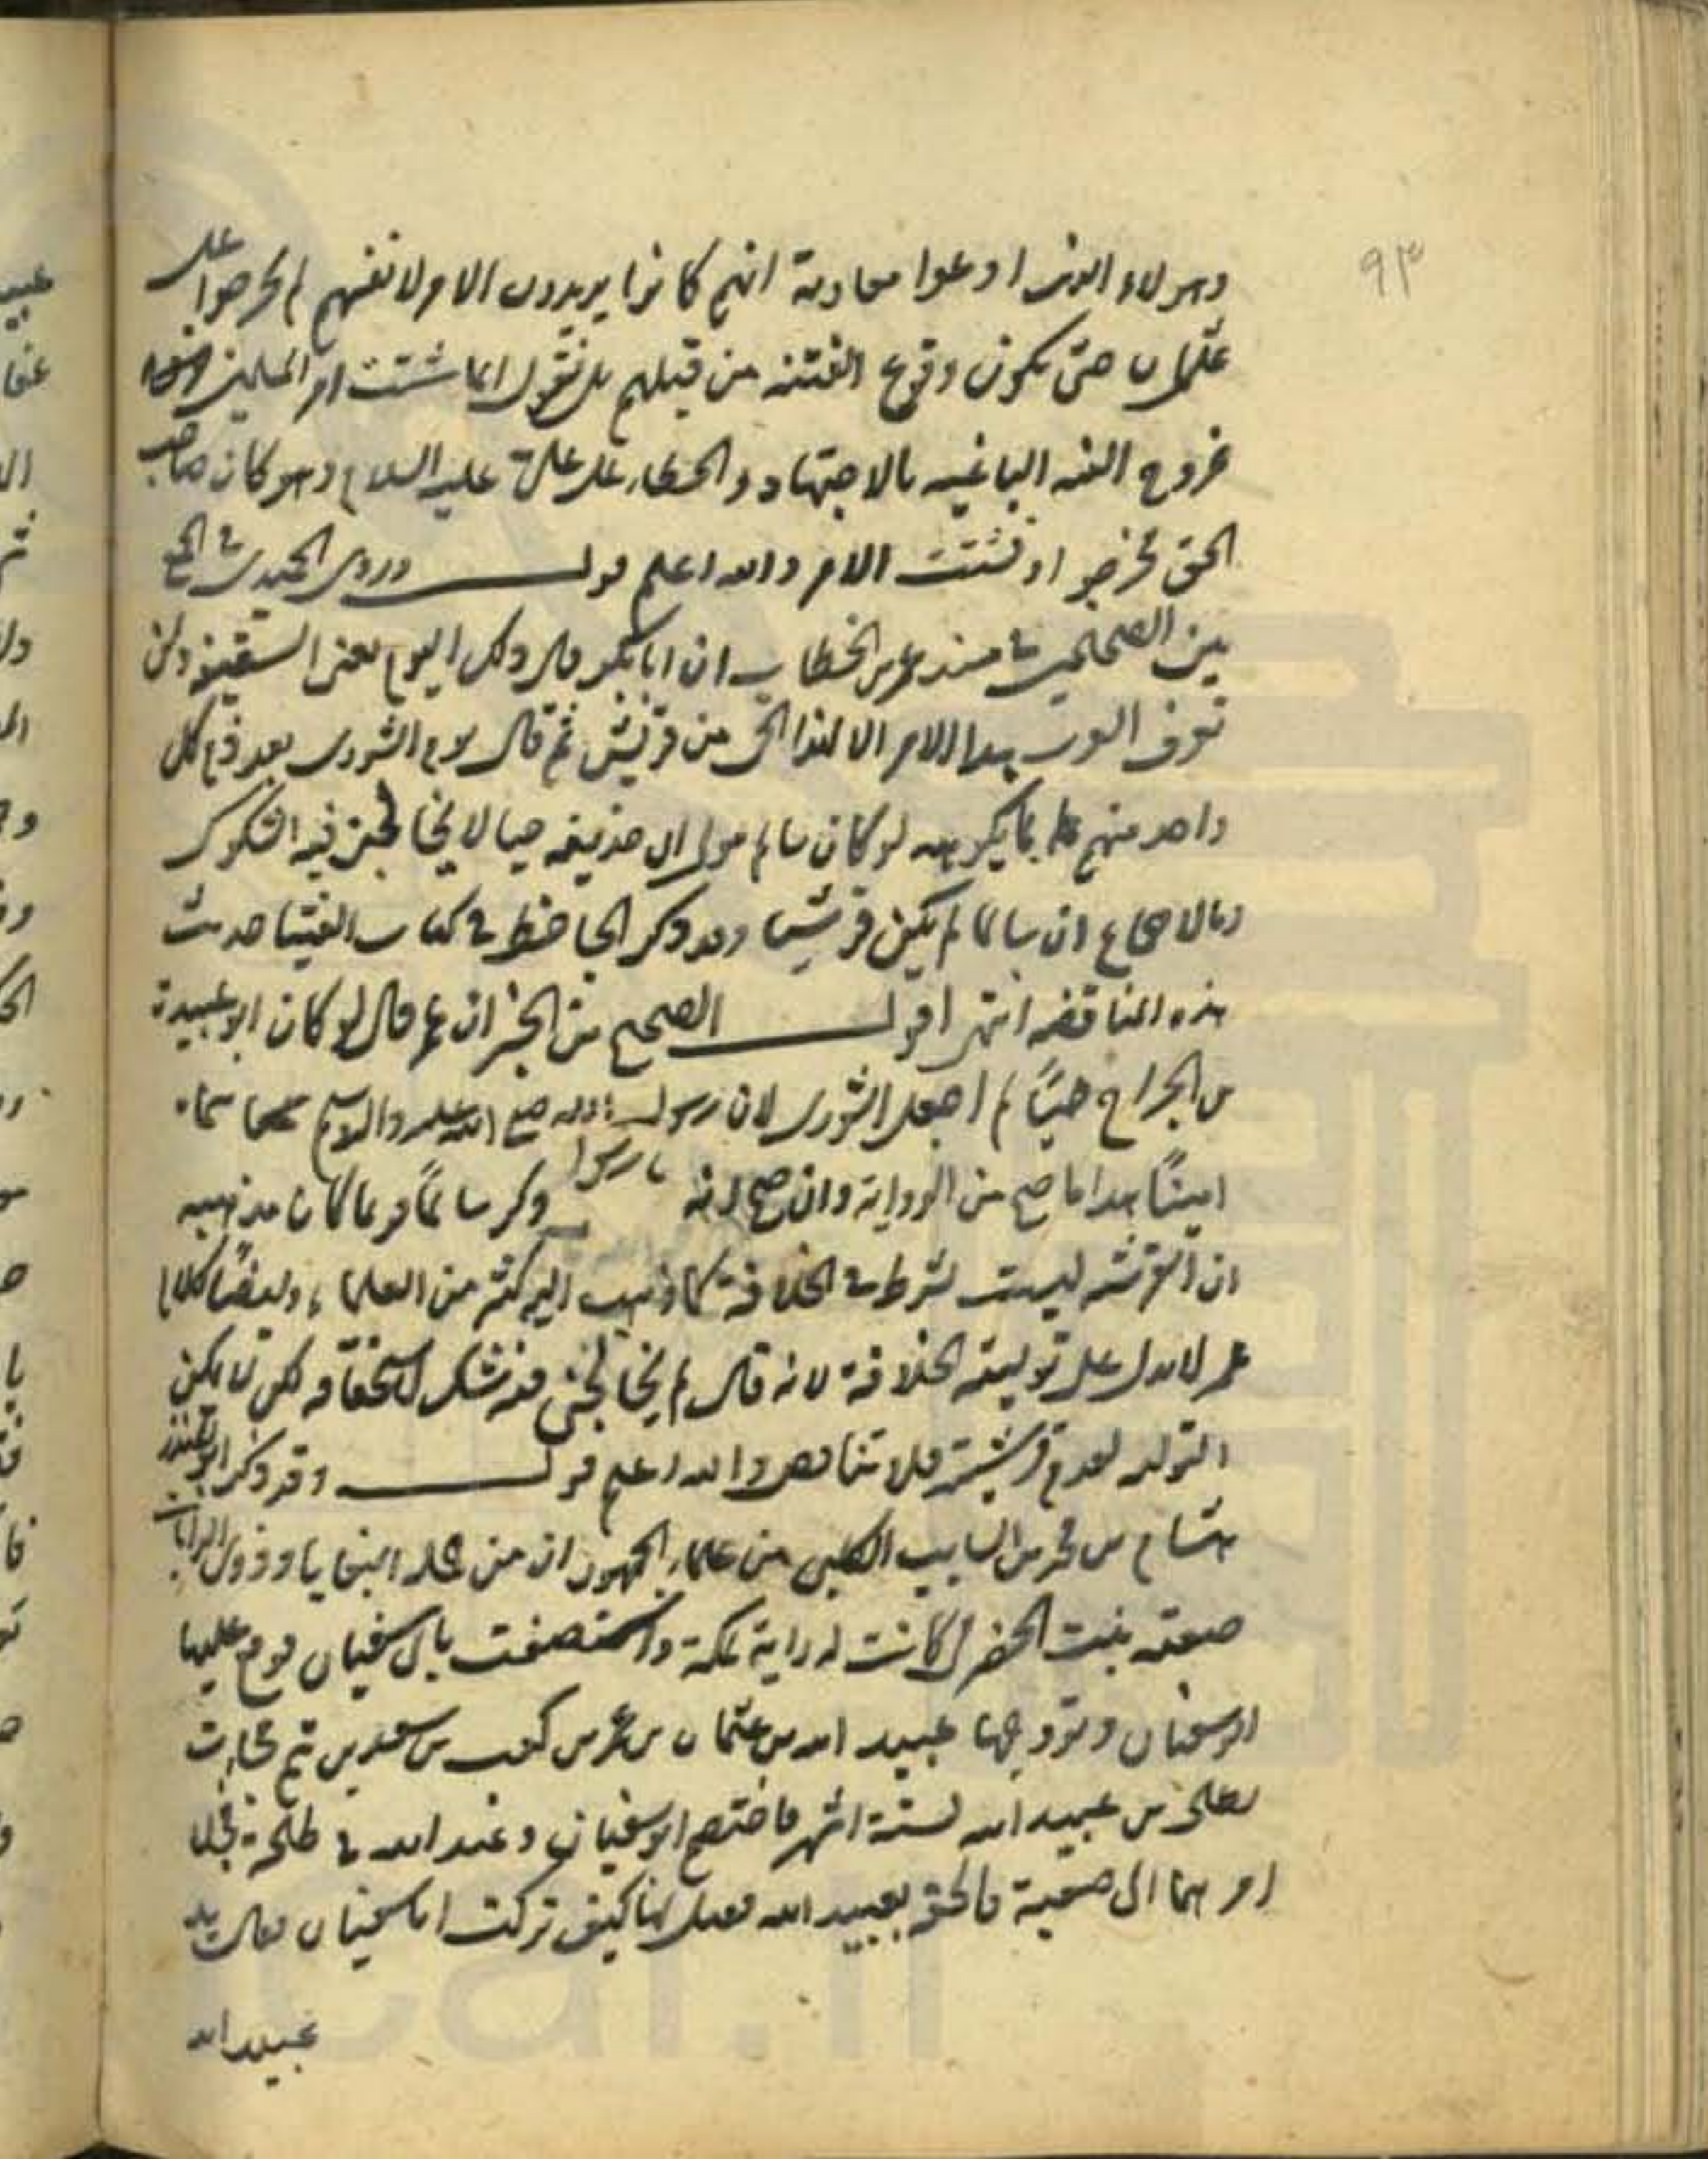 ٩٣
وهولاء الذين ادعوا معاوية انهم كانوا يريدون الامر لانفسهم لم يخرجوا على
عثمان حتى يكون وقوع الفتنه من قبلهم بل نقول انما شتت امر المسلمين
خروج الفئه الباغيه بالاجتهاد والخطاء على علي عليه السلام وهو كان صاحب
الحق فخرجوا وتشتت الامر والله اعلم قولـــه وروى الحميدي في الجمع
بين الصحيحين في مسند عمر بن الخطاب ان ابا بكر قال ذلك اليوم يعني السقيفه ولن
تعرف العرب هذا الامر الا لهذا الحي من قريش ثم قال يوم الشورى بعد ذم كل
واحد منهم بما يكرهه لو كان سالم مولى ابي حذيفه حيا لا يخالجني فيه الشكوك
وبالاجماع ان سالما لم يكن قرشيا وقد ذكر الجاحظ في كتاب الفتيا حديث
هذه المناقضه انتهى اقولـــ الصحيح من الخبر ان عمر قال لو كان ابو عبيدة
بن الجراح حيًا لم اجعل الشورى لان رسول الله صلى الله عليه واله وسلم سماه
امينًا هذا ما صح من الرواية وان صح انه ذكر سالمًا فربما كان مذهبه
ان القرشيه ليست بشرط في الخلافة كما ذهب اليه كثير من العلماء وايضًا كلام
عمر لا يدل على توليته الخلافة لانه قال لم يخالجني فيه شك لاستحقاقه لكن لا يمكن
التوليه لعدم قرشيته فلا تناقض والله اعلم قولـــه وقد ذكر ابو المنذر
هشام بن محمد بن السايب الكلبي من علماء الجمهور ان من جمله البغايا وذوي الرايات
صعبه بنت الحضرمي كانت لها راية بمكة واستبضعت بابي سفيان فوقع عليها
ابو سفيان وتزوجها عبيد الله بن عثمان بن عمرو بن كعب بن سعد بن تيم فجاءت
بطلحة بن عبيد الله لستة اشهر فاختصم ابو سفيان وعبيد الله في طلحة فجعلا
امرهما الى صعبة فالحقته بعبيد الله فقيل لها كيف تركت ابا سفيان فقالت يد
عبيد الله